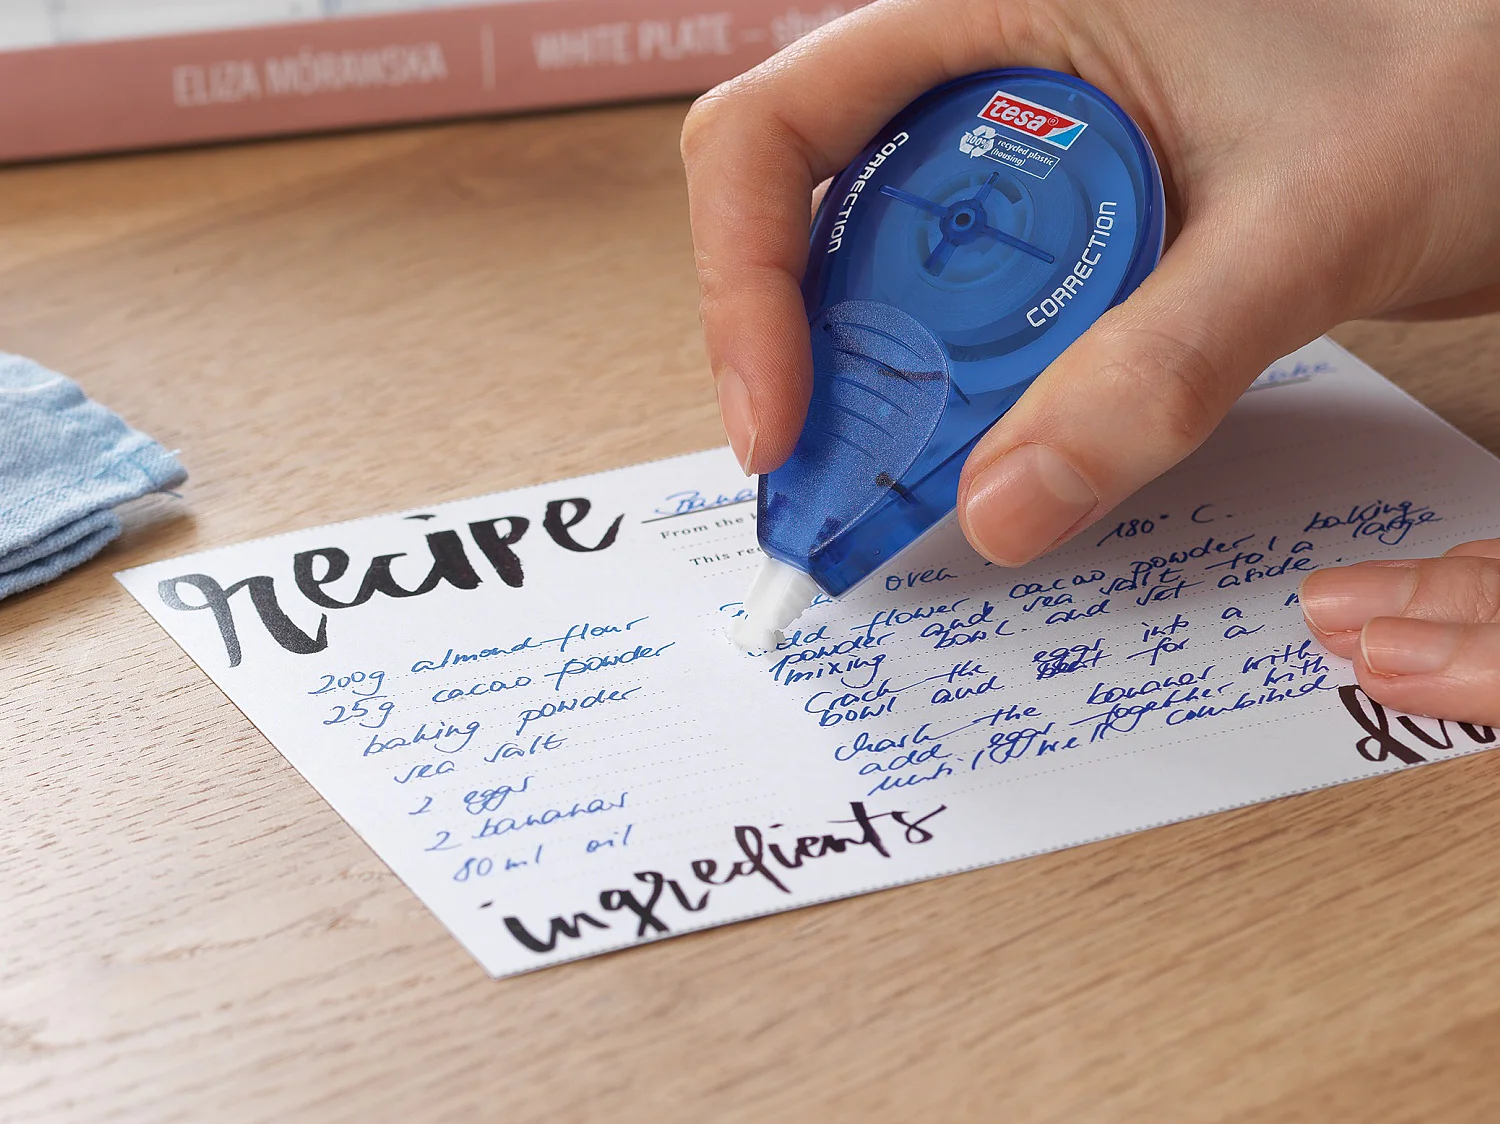 ELIZA MÓRAWSKA
WHITE PLATE –
tesa®
100% recycled plastic
(housing)
CORRECTION
CORRECTION
recipe
From the
This rec
180° C.
oven
add flower cacao powder, baking
powder and sea salt to a large
mixing bowl and set aside.
Crack the eggs into a
bowl and for a
the bananas with
add eggs together with
until well combined
200g almond flour
25g cacao powder
baking powder
sea salt
2 eggs
2 bananas
80ml oil
ingredients